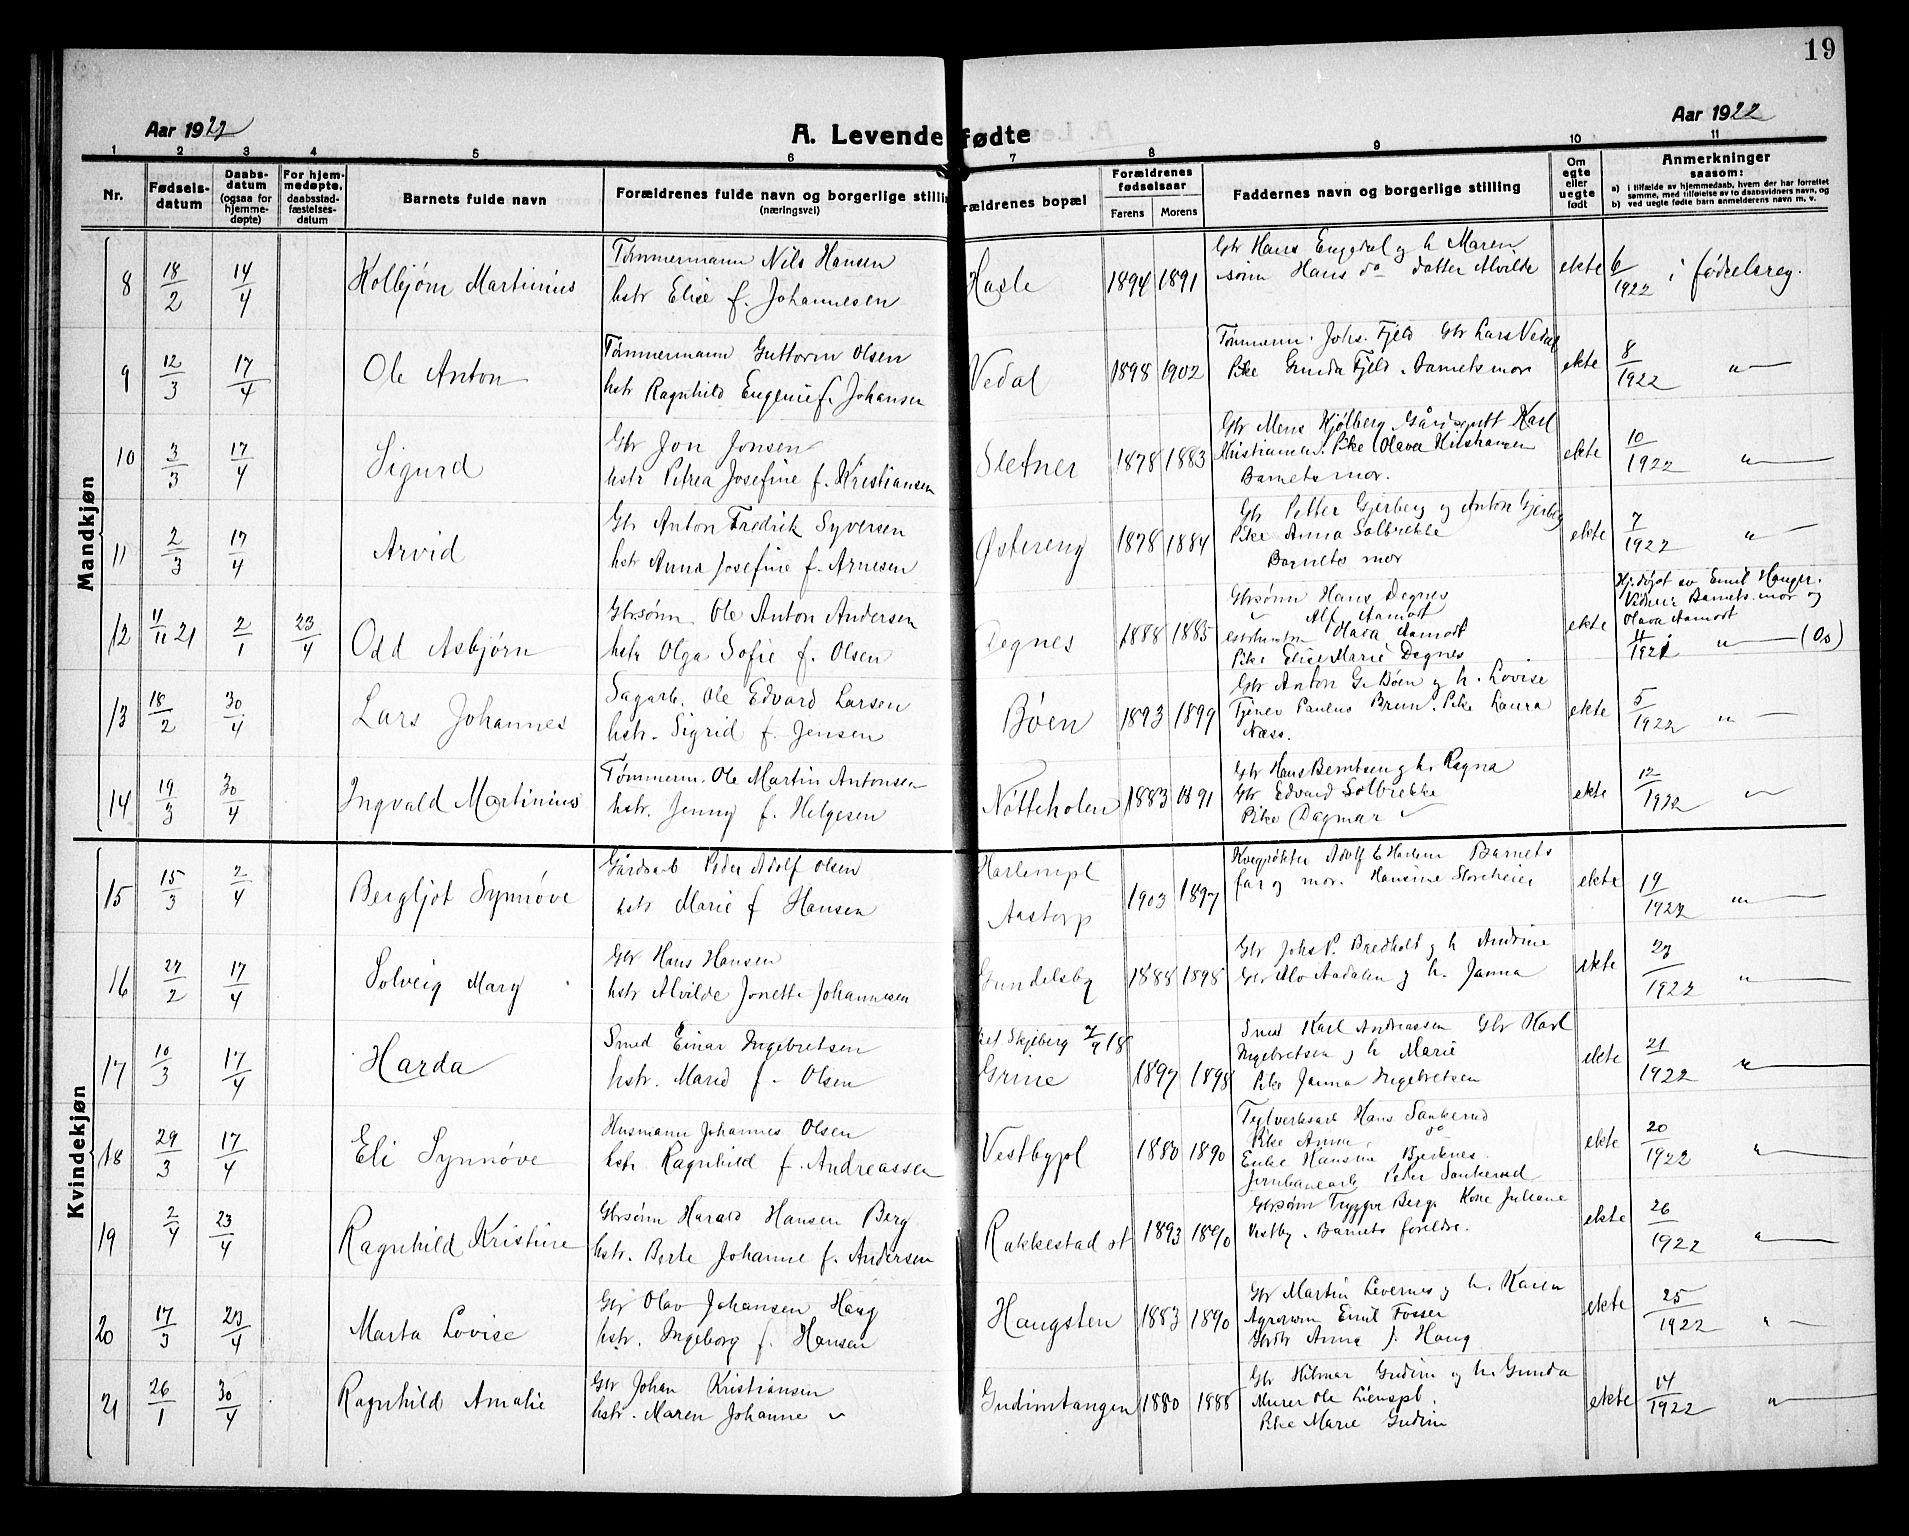 19
Aar 1922
A. Levende fødte
Aar 1922
1 2 3 4 5 6 7 8 9 10 11
Nr.
Fødsels-
datum
Daabs-
datum
(ogsaa for
hjemme-
døpte)
For hjem-
medøpte,
daabsstad-
fæstelses-
datum
Barnets fulde navn
Forældrenes fulde navn og borgerlige stilling
(næringsvei)
Forældrenes bopæl
Forældrenes
fødselsaar
Farens Morens
Faddernes navn og borgerlige stilling
Om
egte
eller
uegte
født
Anmerkninger
saasom:
a) i tilfælde av hjemmedaab, hvem der har forrettet
samme, med tilføielse av to daabsvidners navn, og
b) ved uegte fødte barn anmelderens navn m. v.
Mandkjøn
8 18/2 14/4 Kolbjørn Martinius
Tømmermann Nils Hansen
hstr Elise f. Johannesen
Hasle 1894 1891
Gbr Hans Engdal og h Maren
som Hans do datter Alvilde
ekte 6/1922 i fødselsreg.
9 12/3 17/4 Ole Anton
Tømmermann Guttorm Olsen
hstr Ragnhild Eugenie f. Johansen
Vedal 1898 1902
Tømmerm. Johs. Fjeld Gbr Lars Vedal
Pike Gunda Fjeld. Barnets mor
ekte 8/1922 "
10 3/3 17/4 Sigurd
Gbr Jon Jonsen
hstr Petrea Josefine f. Kristiansen
Sletner 1878 1883
Gbr Mens Kjølberg Gårdsgutt Karl
Kristiansen. Pike Olava Kilshaugen
Barnets mor.
ekte 10/1922 "
11 2/3 17/4 Arvid
Gbr Anton Fredrik Syversen
hstr Anna Josefine f. Arnesen
Østereng 1878 1884
Gbr Petter Gjerberg og Anton Gjerberg
Pike Anna Solbrekke
Barnets mor
ekte 7/1922 "
12 11/11 21 2/1 23/4 Odd Asbjørn
Gbrsønn Ole Anton Andersen
hstr Olga Sofie f. Olsen
Degnes 1888 1885
Gbrsønn Hans Degnes
" Alf Aamodt
Olava Aamodt
Pike Elise Marie Degnes
ekte
Hj.døpt av Emil Hauger.
Vidner Barnets mor og
Olava Aamodt
4/1921 i " (Os)
13 18/2 30/4 Lars Johannes
Sagarb. Ole Edvard Larsen
hstr. Sigrid f. Jensen
Bøen 1893 1899
Gbr Anton G. Bøen og h. Lovise
Tjener Paulus Brun. Pike Laura
Næss.
ekte 5/1922 "
14 19/3 30/4 Ingvald Martinius
Tømmerm. Ole Martin Antonsen
hstr. Jenny f. Helgesen
Nøtteholen 1883 1891
Gbr Hans Berntsen og h. Ragna
Gbr Edvard Solbrekke
Pike Dagmar "
ekte 12/1922 "
Kvindekjøn
15 15/3 2/4 Bergljot Synnøve
Gårdsarb Peder Adolf Olsen
hstr Marie f Hansen
Harlempl
Aastorp
1903 1897
Kvegrøkter Adolf E Harlem Barnets
far og mor. Hansine Storeheier
ekte 19/1922 "
16 27/2 17/4 Solveig Mary
Gbr Hans Hansen
hstr Alvilde Jonette Johannesen
Gundelsby 1888 1898
Gbr Johs P. Bredholt og h Andrine
Gbr Alo Aadalen og h. Janna
ekte 23/1922 "
17 10/3 17/4 Harda
Smed Einar Ingebretsen
hstr. Marie f. Olsen
Skjeberg 7/9 18
Grine 1897 1898
Smed Karl Andreassen Gbr Karl
Ingebretsen og h Marie
Pike Janna Ingebretsen
ekte 21/1922 "
18 29/3 17/4 Eli Synnøve
Husmann Johannes Olsen
hstr Ragnhild f. Andreassen
Vestbypl 1880 1890
Teglverksarb Hans Sankerud
Pike Anna do
Enke Hansine Bjerknes
Jernbanearb Peder Sankerud
ekte 20/1922 "
19 2/4 23/4 Ragnhild Kristine
Gbrsønn Harald Hansen Berg
hstr. Berte Johanne f. Andersen
Rakkestad st 1893 1890
Gbrsønn Trygve Berg. Kone Juliane
Vestby. Barnets foreldre.
ekte 26/1922 "
20 17/3 23/4 Marta Lovise
Gbr Olav Johansen Haug
hstr. Ingeborg f. Hansen
Haugsten 1883 1890
Gbr Martin Levernes og h. Karen
Agronom Emil Fosser
Gbrdtr Anna J. Haug
ekte 25/1922 "
21 26/1 30/4 Ragnhild Amalie
Gbr Johan Kristiansen
hstr. Maren Johanne "
Gudimtangen 1880 1888
Gbr Hilmar Gudim og h. Gunda
Murer Ole Lienspl.
Pike Marie Gudim
ekte 14/1922 "